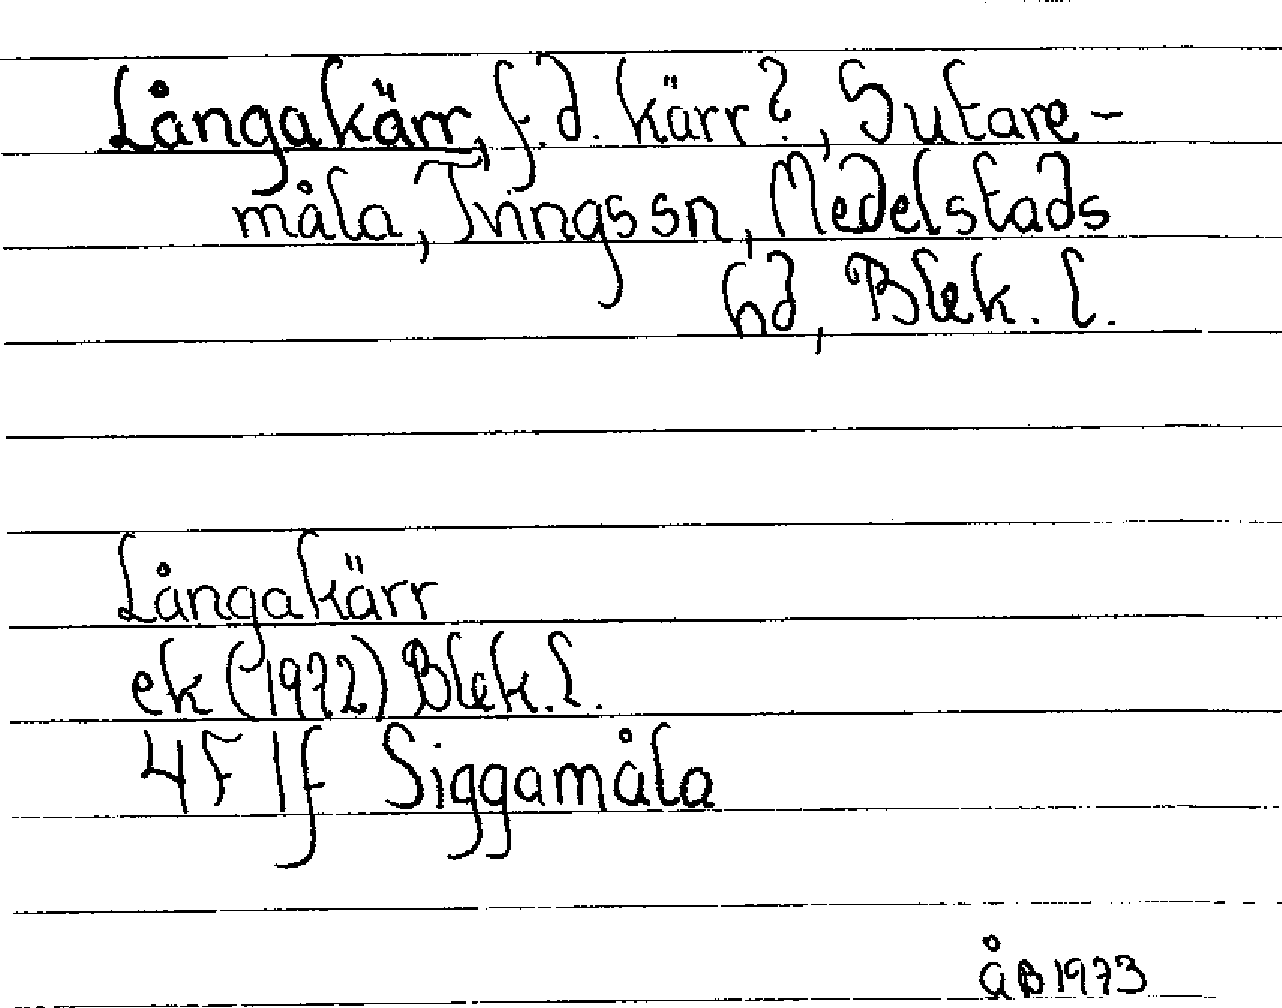 Långakärr, f.d. kärr?, Sutare-
måla, Tvings sn, Medelstads
hd, Blek. l.
Långakärr
ek (1972) Blek. l.
4F 1f Siggamåla
ÅB 1973